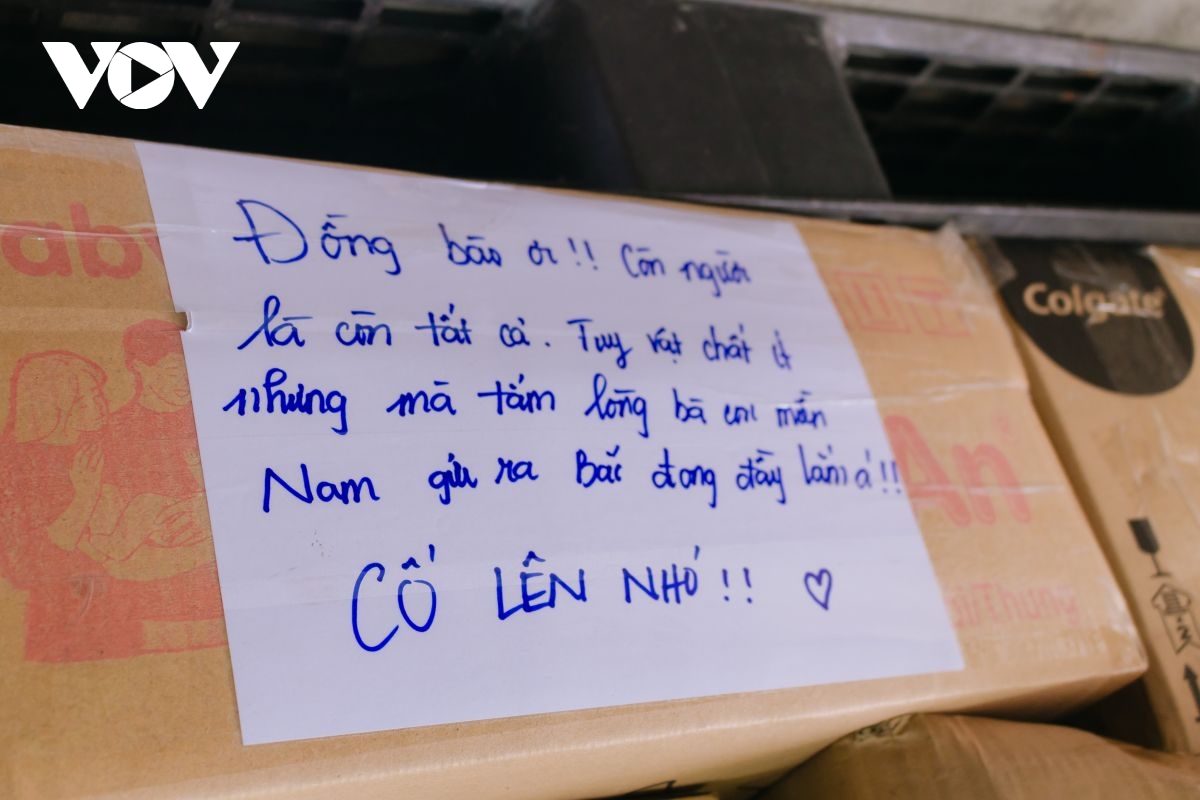 VOV
Đồng bào ơi!! Còn người
là còn tất cả. Tuy vật chất ít
nhưng mà tấm lòng bà con miền
Nam gửi ra Bắc đong đầy lắm á!!
CỐ LÊN NHÓ!! ♡
Colgate
An